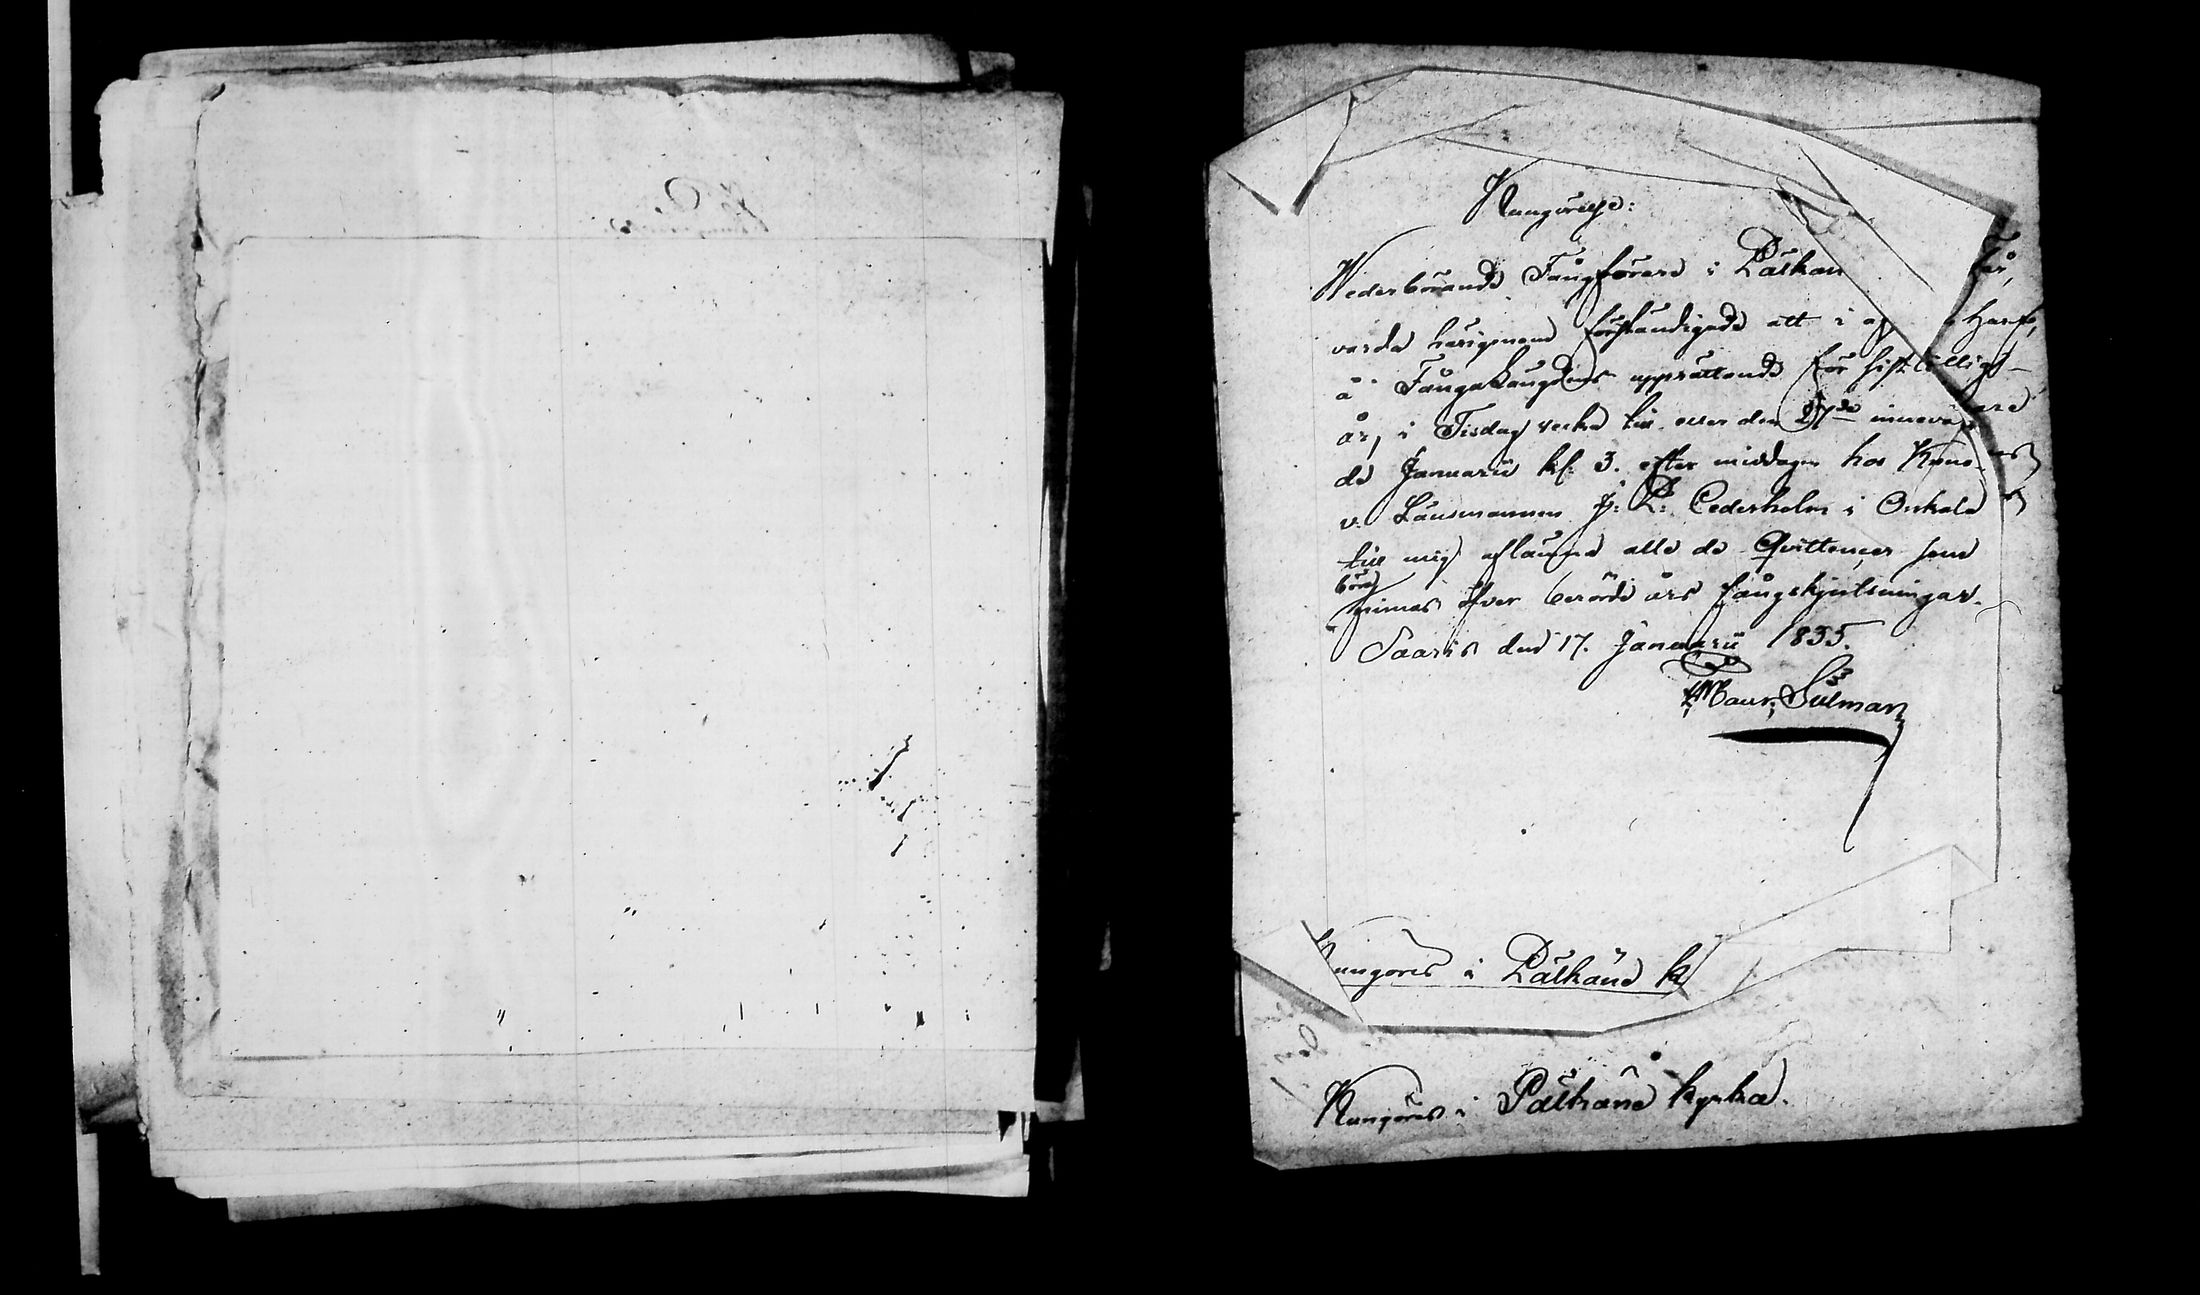 Kungörelse:
Wederbörande Fångförare i Pälkäne
varda härigenom förständigade att i af
å Fångelängdens upprättande för sistledne
år, i Tisdag vecka till eller den 27de innevaran
de Januarii kl: 3. efter middagen hos Krono
v. Länsmannen J: L: Cederholm i Onkala
till mig aflämna alla de Qvittencer som
böra
finnas öfver berörde års fångskjutsningar.
Saaris den 17. Januarii 1835.
Maur: Silman
Kungöres i Pälkäne k
Kungöres i Pälkäne kyrka.